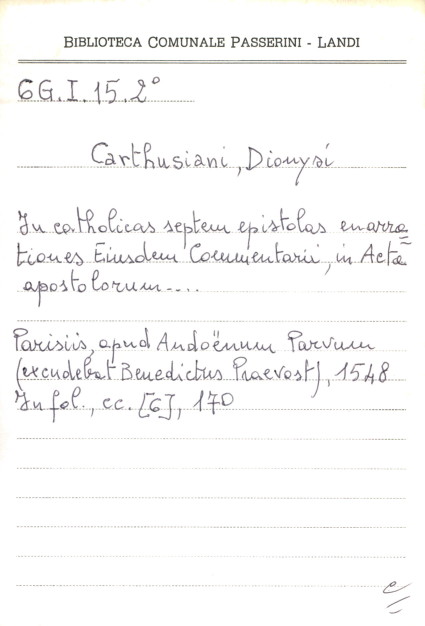 BIBLIOTECA COMUNALE PASSERINI - LANDI
6G.I.15.2°
Carthusiani, Dionysi
In catholicas septem epistolas enarra=
tiones Eiusdem Commentarii, in Acta
apostolorum....
Parisiis, apud Audoënum Parvum
(excudebat Benedictus Praevost), 1548
In fol., cc. [6], 170
e